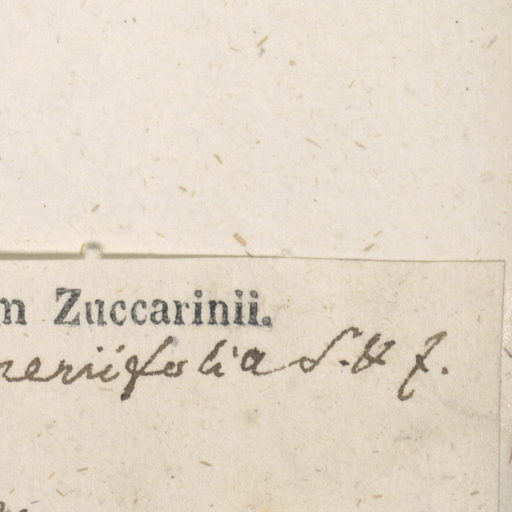 m Zuccarinii.
neriifolia S. & Z.